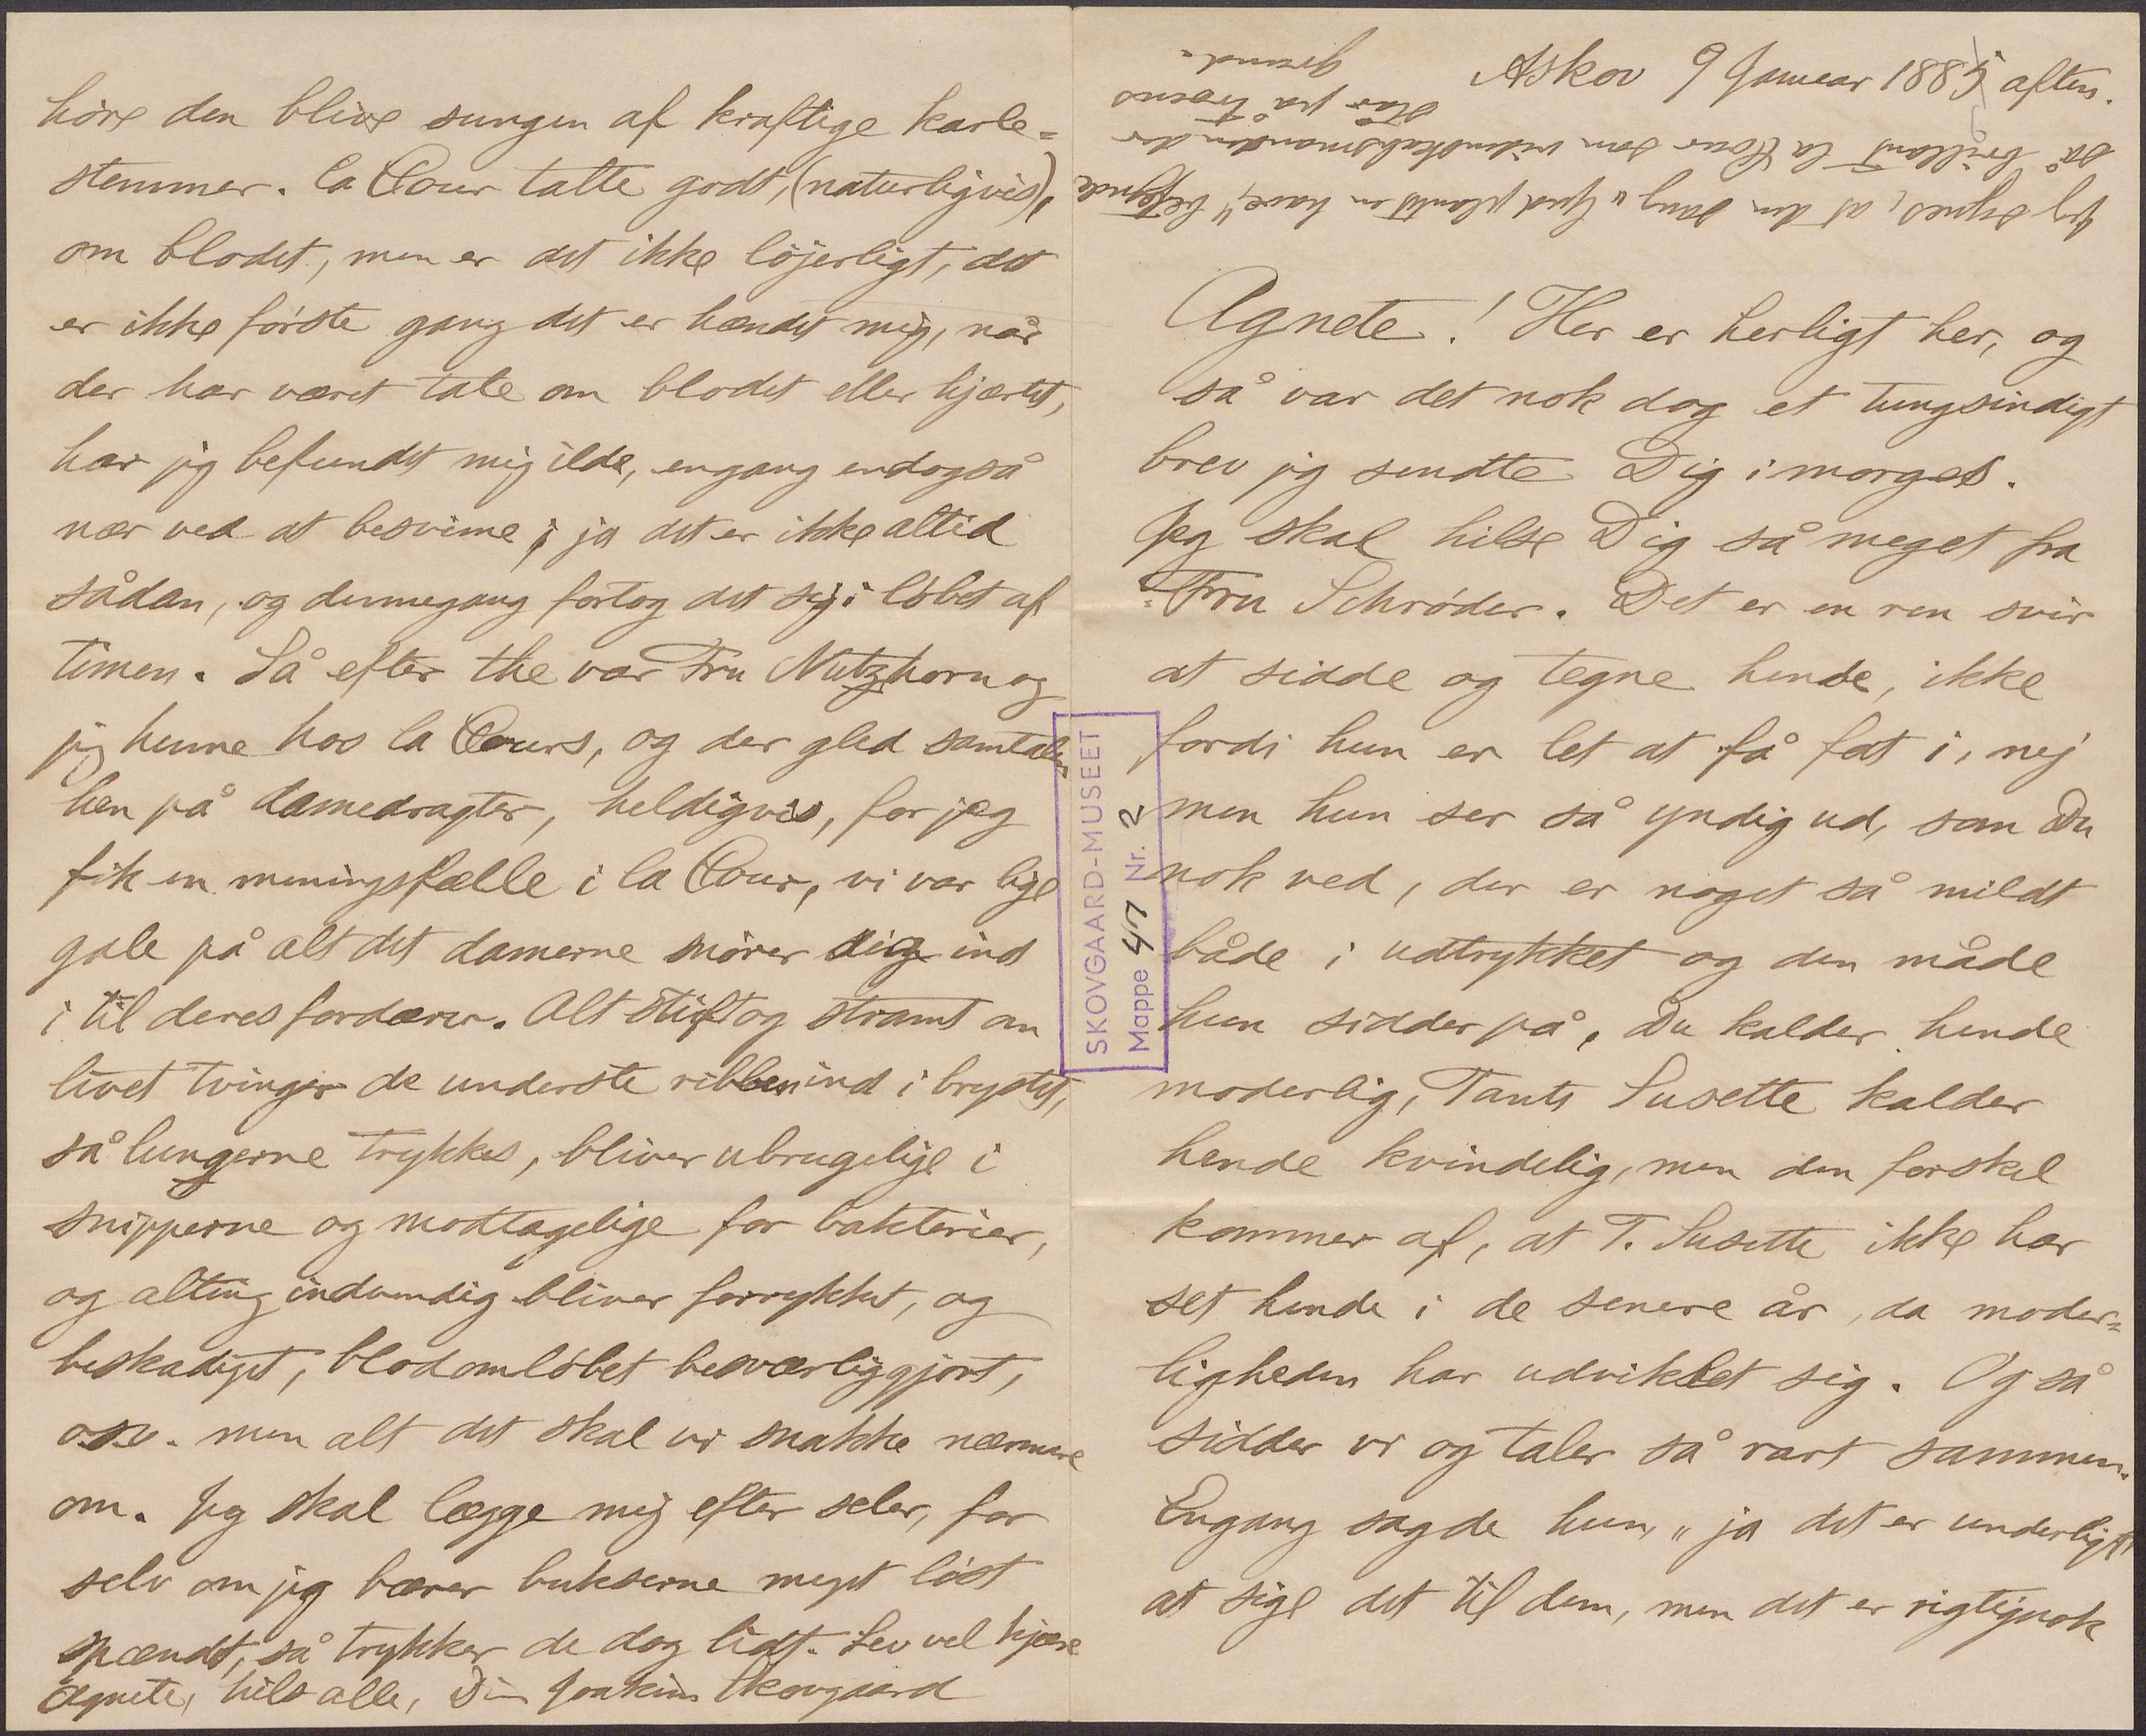 Askov 9 Januar 1885 aften.
Agnete! Her er herligt her, og
så var det nok dog et tungsindigt
brev jeg sendte Dig i morges.
Jeg skal hilse Dig så meget fra
Fru Schrøder. Det er en ren svir
at sidde og tegne hende, ikke
fordi hun er let at få fat i, nej
men hun ser så yndig ud, som Du
nok ved, der er noget så mildt
både i udtrykket og den måde
hun sidder på, Du kalder hende
moderlig, Tante Susette kalder
hende kvindelig, men den forskel
kommer af, at T. Susette ikke har
set hende i de senere år, da moder=
ligheden har udviklet sig. Og så
sidder vi og taler så rart sammen.
Engang sagde hun, "ja det er underligt
at sige det til dem, men det er rigtignok
høre den blive sungen af kraftige karle=
stemmer. la Cour talte godt, (naturligvis),
om blodet, men er det ikke løjerligt, det
er ikke første gang det er hændet mig, når
der har været tale om blodet eller hjærtet,
har jeg befundet mig ilde, engang endogså
nær ved at besvime, ja det er ikke altid
sådan, og dennegang fortog det sig i løbet af
timen. Så efter the var Fru Nutzhorn og
jeg henne hos la Cours, og der gled samtalen
hen på damedragter, heldigvis, for jeg
fik en meningsfælle i la Cour, vi var lige
gale på alt det damerne snører sig ind
i til deres fordærv. Alt stift og stramt om
livet tvinger de underste ribben ind i brystet,
så lungerne trykkes, bliver ubrugelige i
snipperne og modtagelige for bakterier,
og alting indvendig bliver forrykket, og
beskadiget, blodomløbet besværliggjort,
osv. men alt det skal vi snakke nærmere
om. Jeg skal lægge mig efter seler, for
selv om jeg bærer bukserne meget løst
spændt, så trykker de dog lidt. Lev vel kjære
Agnete, hils alle, Din Joakim Skovgaard
Jeg synes, at den sang "Gud plantet en have," betegnede
så brillant la Cour som videnskabsmanden der
står på troens
grund.
SKOVGAARD-MUSEET
Mappe 47 Nr. 2